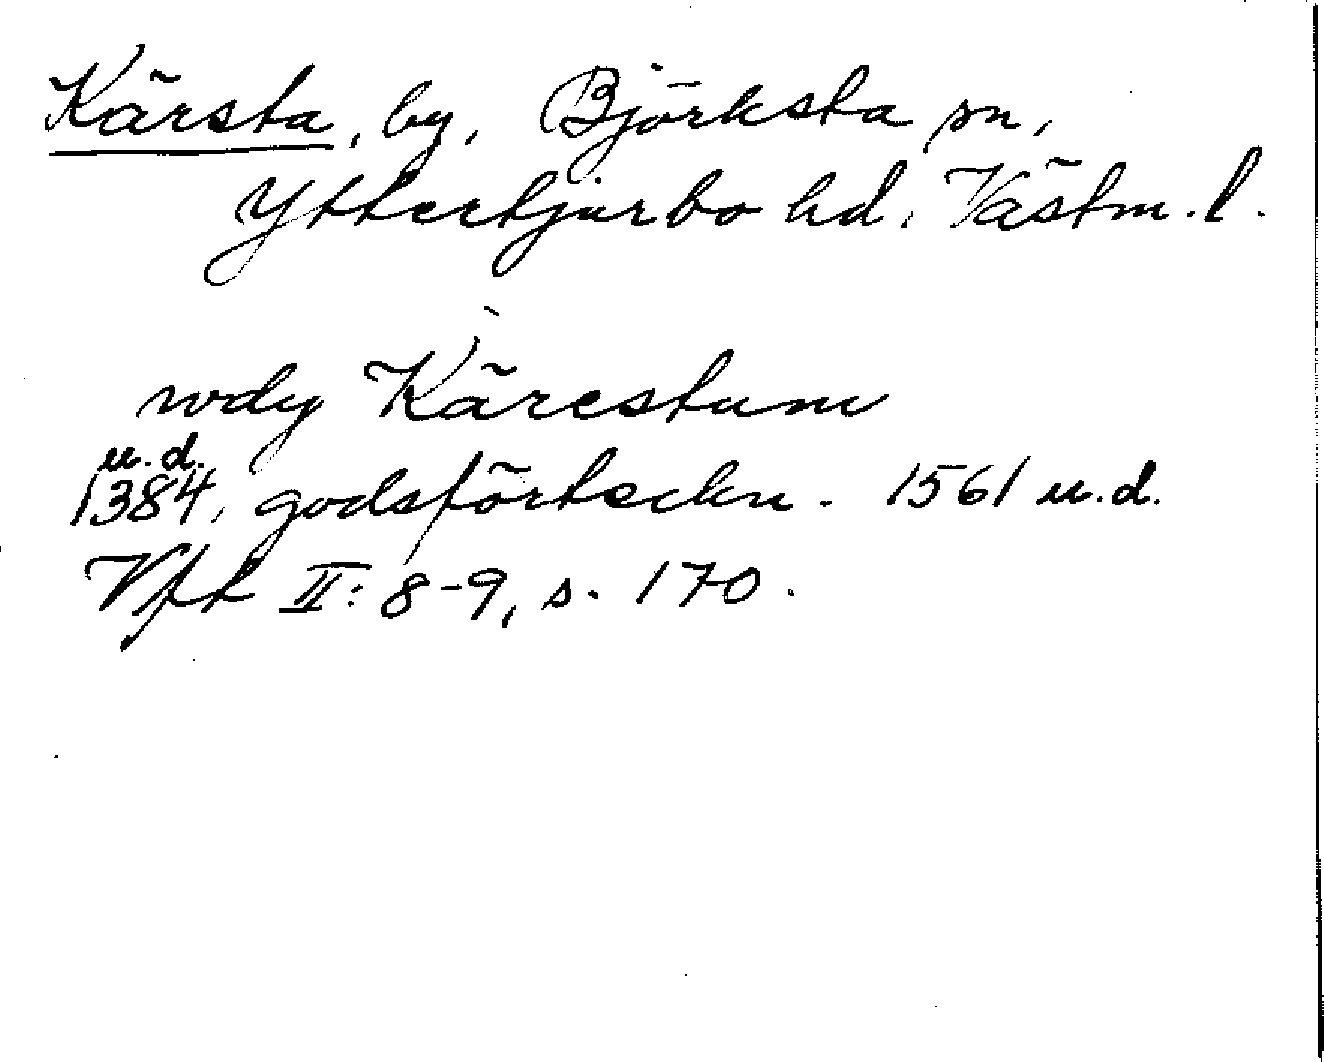 Kärsta, by, Björksta sn,
Yttertjurbo hd. Västm. l.
wdy Kärestum
u.d.
1384, godsförteckn. 1561 u.d.
Vft II: 8-9, s. 170.